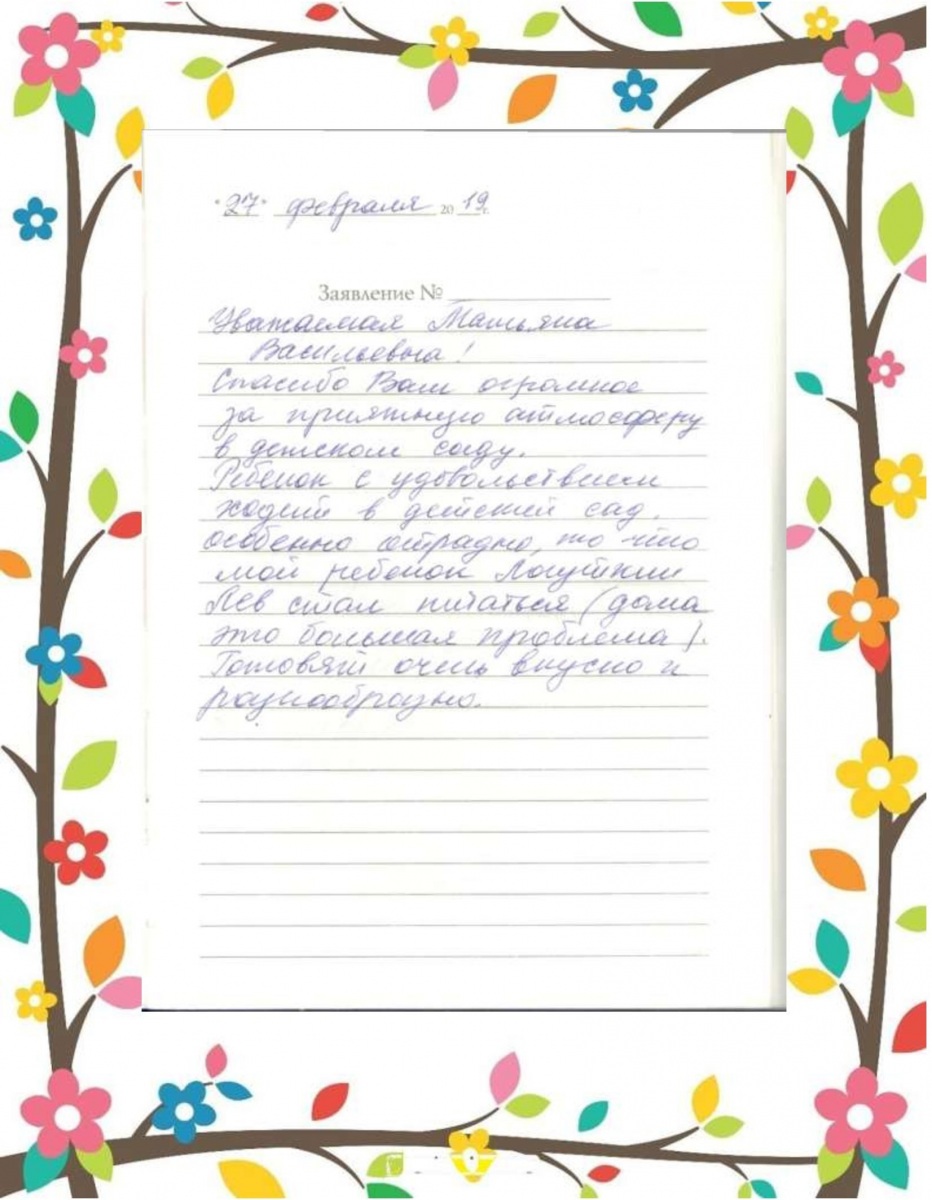 "27" февраля 2019г.
Заявление №
Уважаемая Татьяна
Васильевна!
Спасибо Вам огромное
за приятную атмосферу
в детском саду.
Ребенок с удовольствием
ходит в детский сад.
особенно отрадно, то что
мой ребенок Логуткин
Лев стал питаться (дома
это большая проблема).
Готовят очень вкусно и
разнообразно.